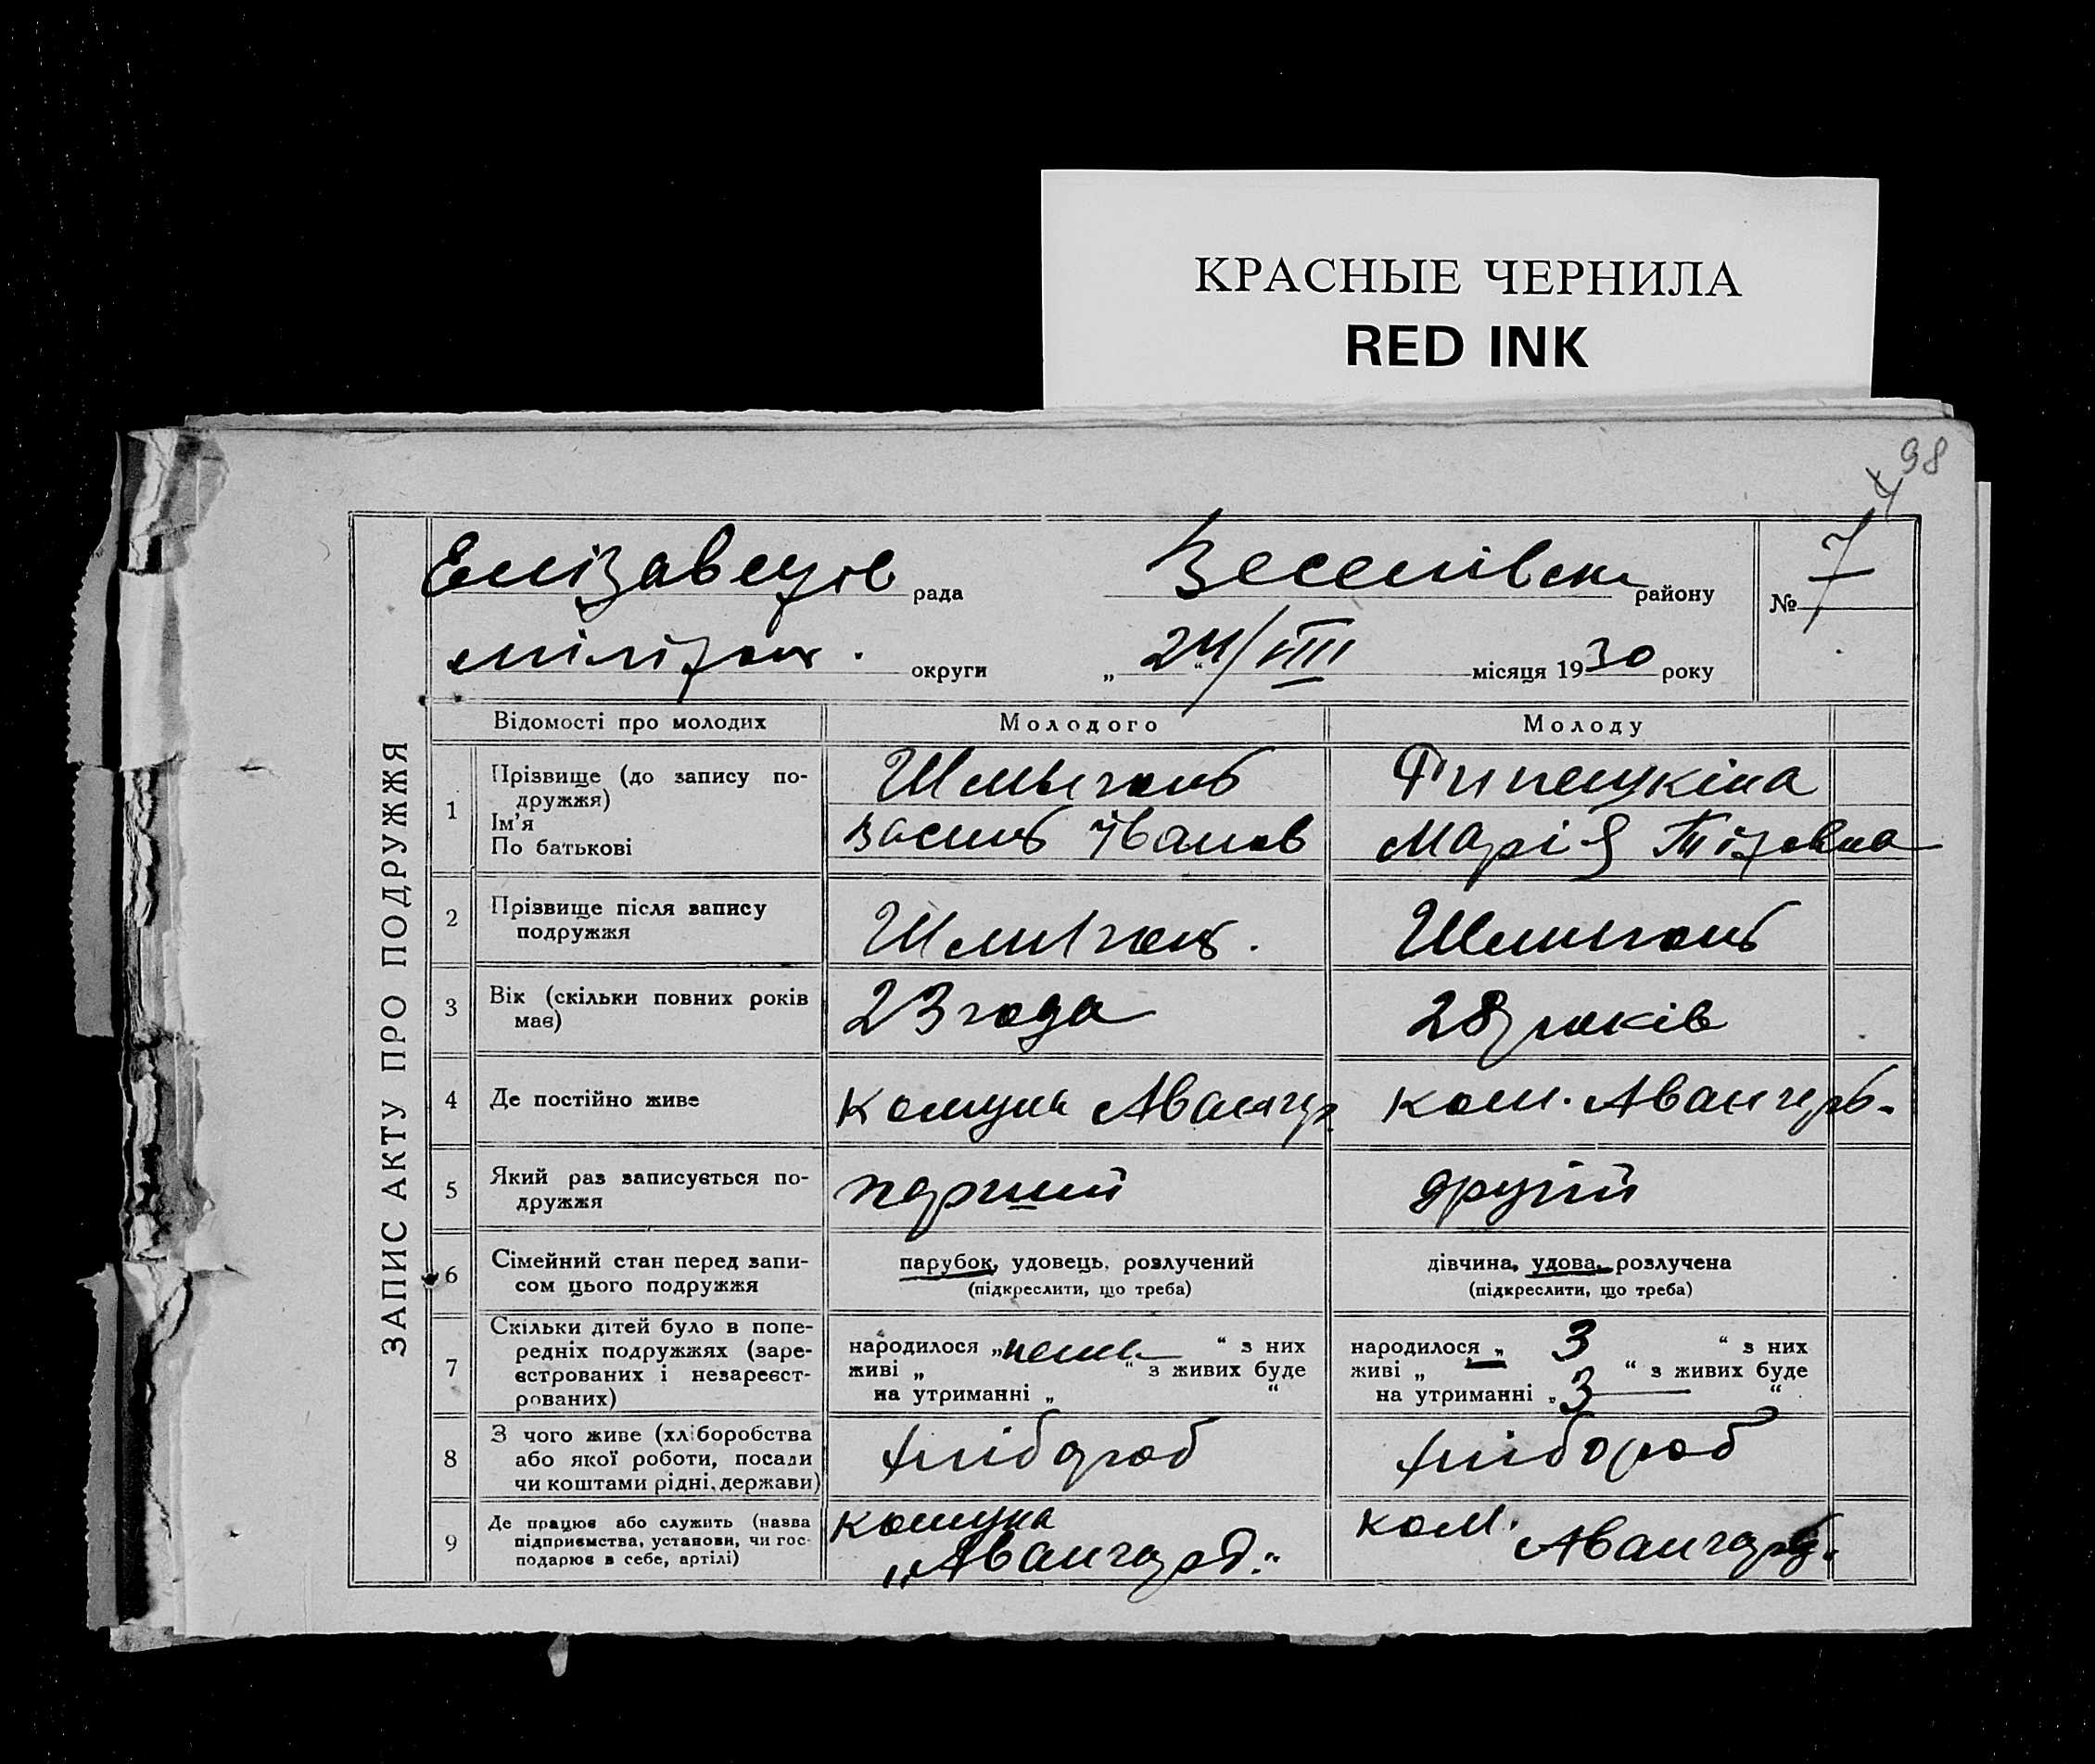 КРАСНЫЕ ЧЕРНИЛА
RED INK
98
ЗАПИС АКТУ ПРО ПОДРУЖЖЯ
рада
району
№ 7
округи
„ 24/VIII місяця 1930 року
Відомості про молодих
Молодого
Молоду
1
Прізвище (до запису по-
дружжя)
Ім'я
По батькові
Марія
2
Прізвище після запису
подружжя
3
Вік (скільки повних років
має)
23 года
28 років
4
Де постійно живе
Комуна
ком.
5
Який раз записується по-
дружжя
другій
6
Сімейний стан перед запи-
сом цього подружжя
парубок, удовець, розлучений
(підкреслити, що треба)
дівчина, удова, розлучена
(підкреслити, що треба)
7
Скільки дітей було в попе-
редніх подружжях (заре-
єстрованих і незареєст-
рованих)
народилося „нема “ з них
живі „ “ з живих буде
на утриманні „ “
народилося „ 3 “ з них
живі „ “ з живих буде
на утриманні „ 3 “
8
З чого живе (хліборобства
або якої роботи, посади
чи коштами рідні, держави)
хлібороб
хлібороб
9
Де працює або служить (назва
підприємства, установи, чи гос-
подарює в себе, артілі)
комуна
„Авангард“
ком.
Авангард.